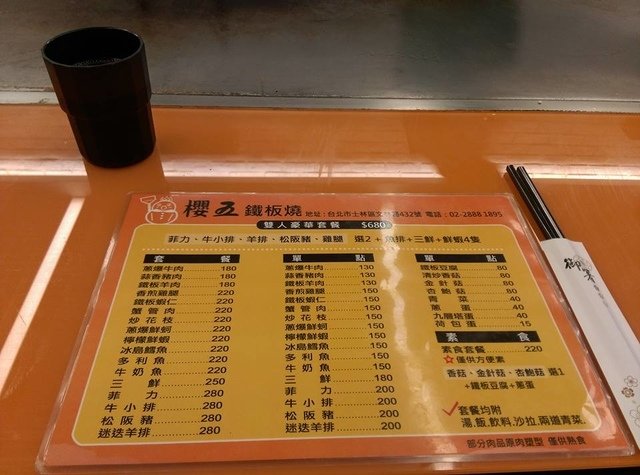 櫻五 鐵板燒 地址：台北市士林區文林路432號 電話：02-2888 1895
雙人豪華套餐 $680
菲力、牛小排、羊排、松阪豬、雞腿 選2 + 魚排+三鮮+鮮蝦4隻
套餐
蔥爆牛肉 180
蒜香豬肉 180
鐵板羊肉 180
香煎雞腿 220
鐵板蝦仁 220
蟹管肉 220
炒花枝 220
蔥爆鮮蚵 220
檸檬鮮蝦 220
冰島鱈魚 220
多利魚 220
牛奶魚 220
三鮮 250
菲力 280
牛小排 280
松阪豬 280
迷迭羊排 280
單點
蔥爆牛肉 130
蒜香豬肉 130
鐵板羊肉 130
香煎雞腿 150
鐵板蝦仁 150
蟹管肉 150
炒花枝 150
蔥爆鮮蚵 150
檸檬鮮蝦 150
冰島鱈魚 150
多利魚 150
牛奶魚 150
三鮮 180
菲力 200
牛小排 200
松阪豬 200
迷迭羊排 200
單點
鐵板豆腐 80
清炒香菇 80
金針菇 80
杏鮑菇 80
青菜 40
蔥蛋 40
九層塔蛋 40
荷包蛋 15
素食
素食套餐 220
☆僅供方便素
香菇、金針菇、杏鮑菇 選1
+鐵板豆腐+蔥蛋
✓套餐均附
湯,飯,飲料,沙拉,兩道青菜.
部分肉品原肉塑型 僅供熟食